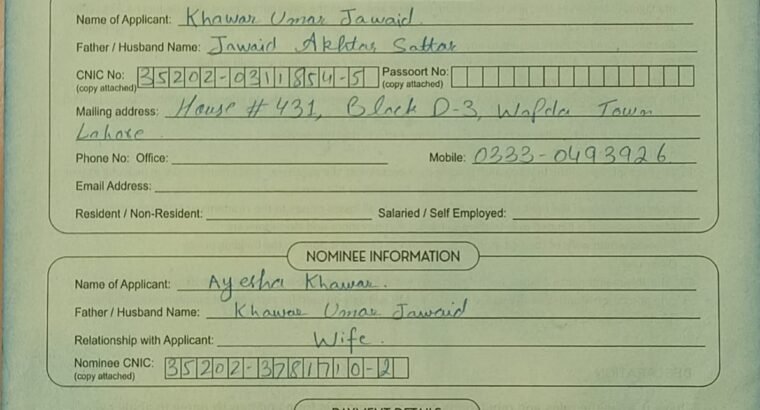 Name of Applicant: Khawar Umar Jawaid
Father / Husband Name: Jawaid Akhtar Sattar
CNIC No: 35202-0311854-5 Passoort No:
(copy attached) (copy attached)
Mailing address: House # 431, Block D-3, Wapda Town
Lahore
Phone No: Office: Mobile: 0333-0493926
Email Address:
Resident / Non-Resident: Salaried / Self Employed:
NOMINEE INFORMATION
Name of Applicant: Ayesha Khawar.
Father / Husband Name: Khawar Umar Jawaid
Relationship with Applicant: Wife.
Nominee CNIC: 35202-3781710-2
(copy attached)
PAYMENT DETAILS